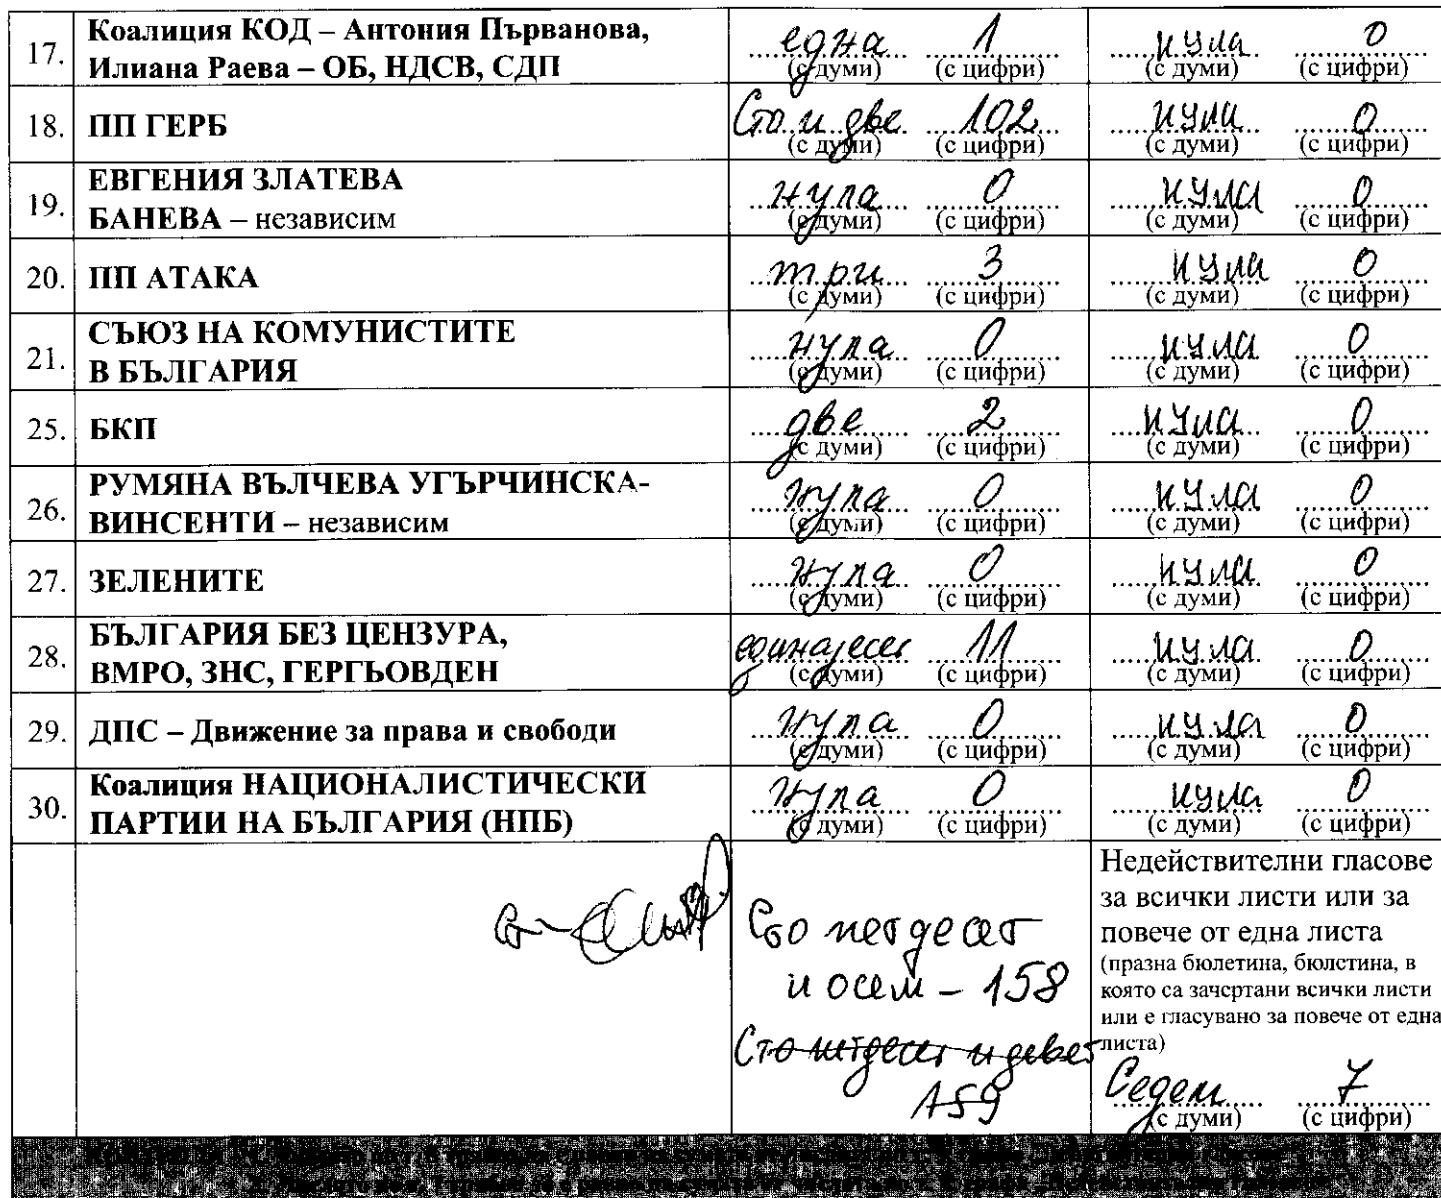 17. Коалиция КОД – Антония Първанова, Илиана Раева – ОБ, НДСВ, СДП една (с думи) 1 (с цифри) нула (с думи) 0 (с цифри)
18. ПП ГЕРБ Сто и две (с думи) 102 (с цифри) нула (с думи) 0 (с цифри)
19. ЕВГЕНИЯ ЗЛАТЕВА БАНЕВА – независим нула (с думи) 0 (с цифри) нула (с думи) 0 (с цифри)
20. ПП АТАКА три (с думи) 3 (с цифри) нула (с думи) 0 (с цифри)
21. СЪЮЗ НА КОМУНИСТИТЕ В БЪЛГАРИЯ нула (с думи) 0 (с цифри) нула (с думи) 0 (с цифри)
25. БКП две (с думи) 2 (с цифри) нула (с думи) 0 (с цифри)
26. РУМЯНА ВЪЛЧЕВА УГЪРЧИНСКА-ВИНСЕНТИ – независим нула (с думи) 0 (с цифри) нула (с думи) 0 (с цифри)
27. ЗЕЛЕНИТЕ нула (с думи) 0 (с цифри) нула (с думи) 0 (с цифри)
28. БЪЛГАРИЯ БЕЗ ЦЕНЗУРА, ВМРО, ЗНС, ГЕРГЬОВДЕН единајесет (с думи) 11 (с цифри) нула (с думи) 0 (с цифри)
29. ДПС – Движение за права и свободи нула (с думи) 0 (с цифри) нула (с думи) 0 (с цифри)
30. Коалиция НАЦИОНАЛИСТИЧЕСКИ ПАРТИИ НА БЪЛГАРИЯ (НПБ) нула (с думи) 0 (с цифри) нула (с думи) 0 (с цифри)
Сто петдесет
и осем – 158
Сто петдесет и девет
159
Недействителни гласове
за всички листи или за
повече от една листа
(празна бюлетина, бюлетина, в
която са зачертани всички листи
или е гласувано за повече от една
листа)
Седем 7
(с думи) (с цифри)